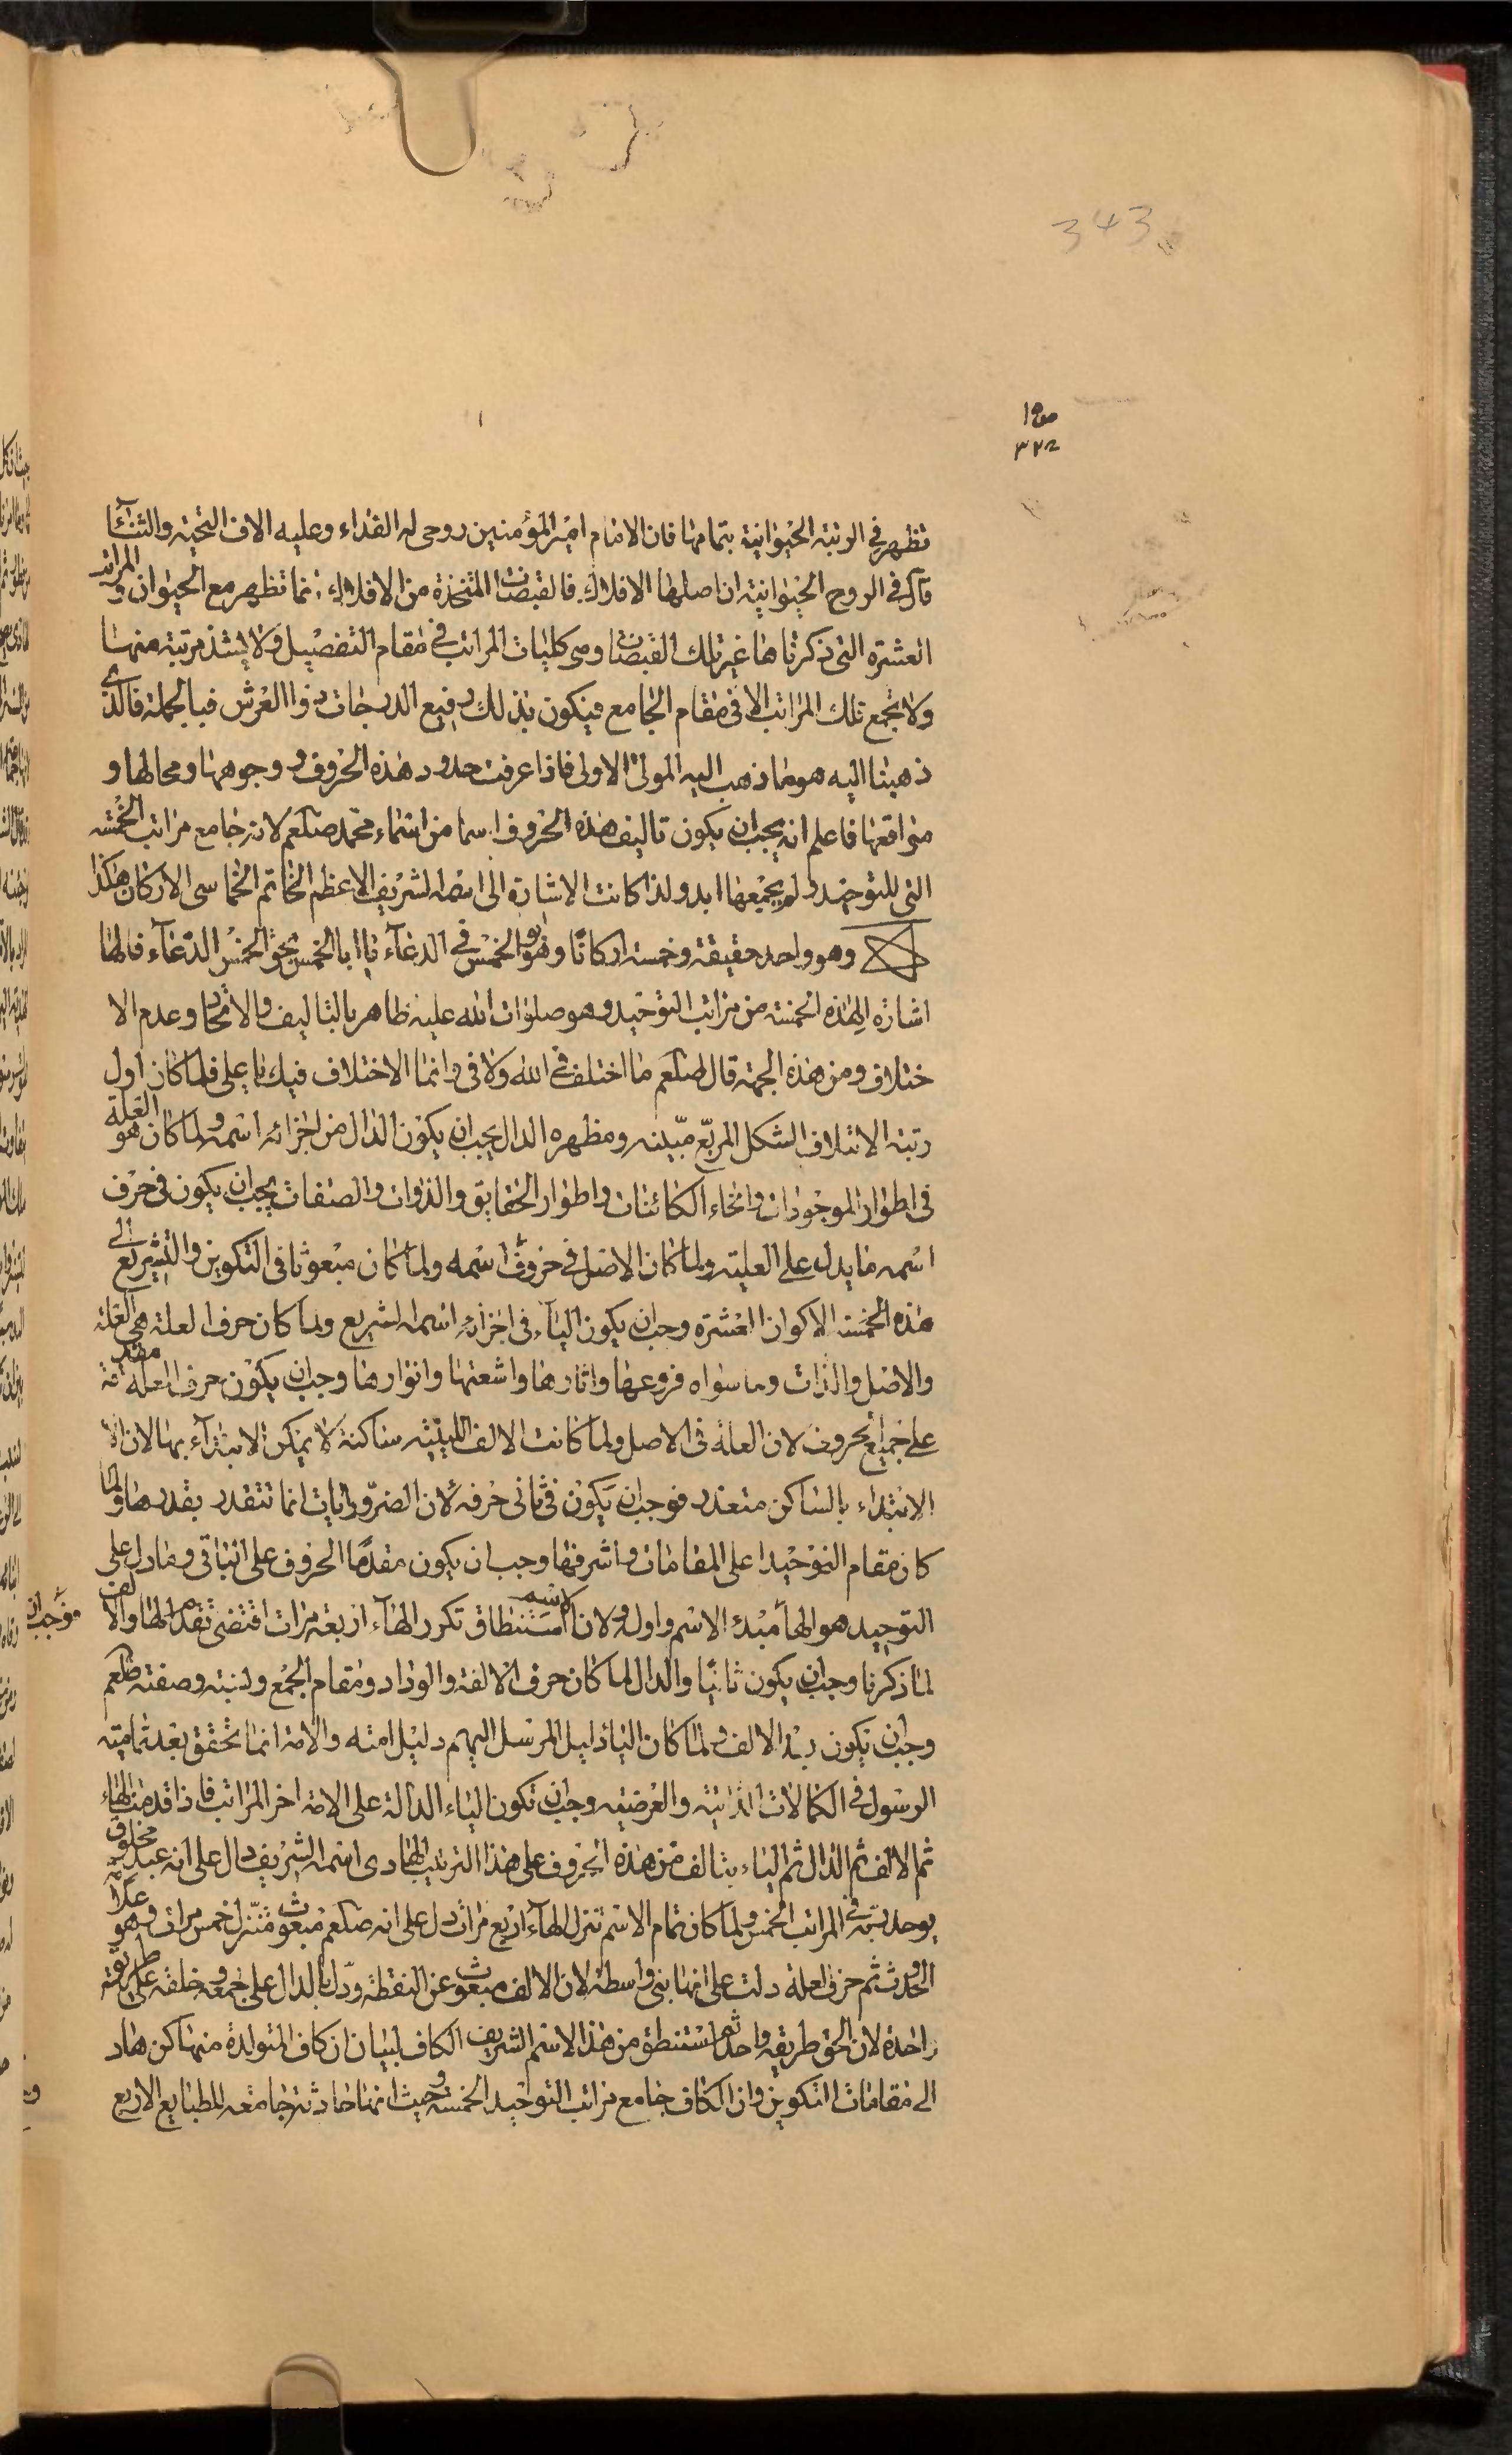 343
تظهر في الرتبة الحيوانية بتمامها فان الامام امير المؤمنين روحي له الفداء وعليه الاف التحية والثناء
قال في الروح الحيوانية ان اصلها الافلاك فالقبضات المتخذة من الافلاك انما تظهر مع الحيوان والمراتب
العشرة التي ذكرناها غير تلك القبضات وهي كليات المراتب في مقام التفصيل ولا يشذ مرتبة منها
ولا تجمع تلك المراتب الا في مقام الجامع فيكون بذلك رفيع الدرجات ذوا العرش فبالجملة فالذي
ذهبنا اليه هو ما ذهب اليه المولى الاولى فاذا عرفت حدود هذه الحروف ووجوهها ومحالها و
مواقعها فاعلم انه يجب ان يكون تاليف هذه الحروف اسما من اسماء محمد صلعم لانه جامع مراتب الخمسة
التي للتوحيد ولم يجمعها ابدو لذا كانت الاشارة الى اسمه الشريف الاعظم الخاتم الخماسى الاركان هكذا
وهو واحد حقيقة وخمسة اركانا وهو ابو الخمس في الدعآء يا ابا الخمس بحق الخمس الدعآء فالها
اشارة الى هذه الخمسة من مراتب التوحيد وهو صلوات الله عليه ظاهر بالتاليف والاتحاد وعدم الا
ختلاف ومن هذه الجهة قال صلعم ما اختلف في الله ولا في وانما الاختلاف فيك يا على فلما كان اول
رتبة الائتلاف الشكل المربع مبينه ومظهره الدال يجب ان يكون الدال من اجزائه اسمه ولما كان هو العلة
في اطوار الموجودات وانحاء الكائنات واطوار الحقايق والذوات والصفات يجب ان يكون في حرف
اسمه ما يدل على العلية ولما كان الاصل في حروف اسمه ولما كان مبعوثا في التكوين والتشريع الى
هذه الخمسة الاكوان العشرة وجب ان يكون الياء في اجزائه اسمه الشريع ولما كان حرف العلة هي العلة
والاصل والذات وما سواه فروعها واثارها واشعتها وانوارها وجب ان يكون حرف العلة مقدمة
على جميع الحروف لان العلة في الاصل ولما كانت الالف اللينية ساكنة لا يمكن الابتدآء بها لان
الابتداء بالساكن متعذر فوجب ان يكون في ثانى حرفه لان الضروريات انما تتقدر بقدرها ولما
كان مقام التوحيد اعلى المقامات واشرفها وجب ان يكون مقدما الحروف على البناقى وما دل على
التوحيد هو الهأ مبدء الاسم واوله ولان الاسم لاستنطاق تكرر الهآء اربعة مرات اقتضى تقدم الها والالف فوجب ان
لما ذكرنا وجب ان يكون ثانيا والدال لما كان حرف الالفة والوداد ومقام الجمع ورتبته وصفته صلعم
وجب ان يكون بعد الالف ولما كان اليا دليل المرسل اليهم دليل امته والامة انما تحقق بعد تماميته
الرسول في الكمالات الذاتية والعرضية وجب ان تكون الياء الدالة على الامة اخر المراتب فاذا قدمت الهاء
ثم الالف ثم الدال ثم الياء يتالف من هذه الحروف على هذا الترتيب الهادى اسمه الشريف دال على انه عبد مخلوق
يوحد ربه في المراتب الخمس ولما كان تمام الاسم تنزل الهآء اربع مرات دل على انه صلعم مبعوث متنزل خمس مرات وهو علة
الحدوث ثم حرف العلة دلت على انها بنى واسطة لان الالف مبعوث عن النقطة ودل بالدال على جمعه خلقه على طريقة
واحدة لان الحق طريقه واحد ثم استنطق من هذا الاسم الشريف الكاف لبيان ان كاف المتولدة منها كن هاد
الى مقامات التكوين وان الكاف جامع مراتب التوحيد الخمسة وحيث انها حادثة جامعه للطبايع الاربع